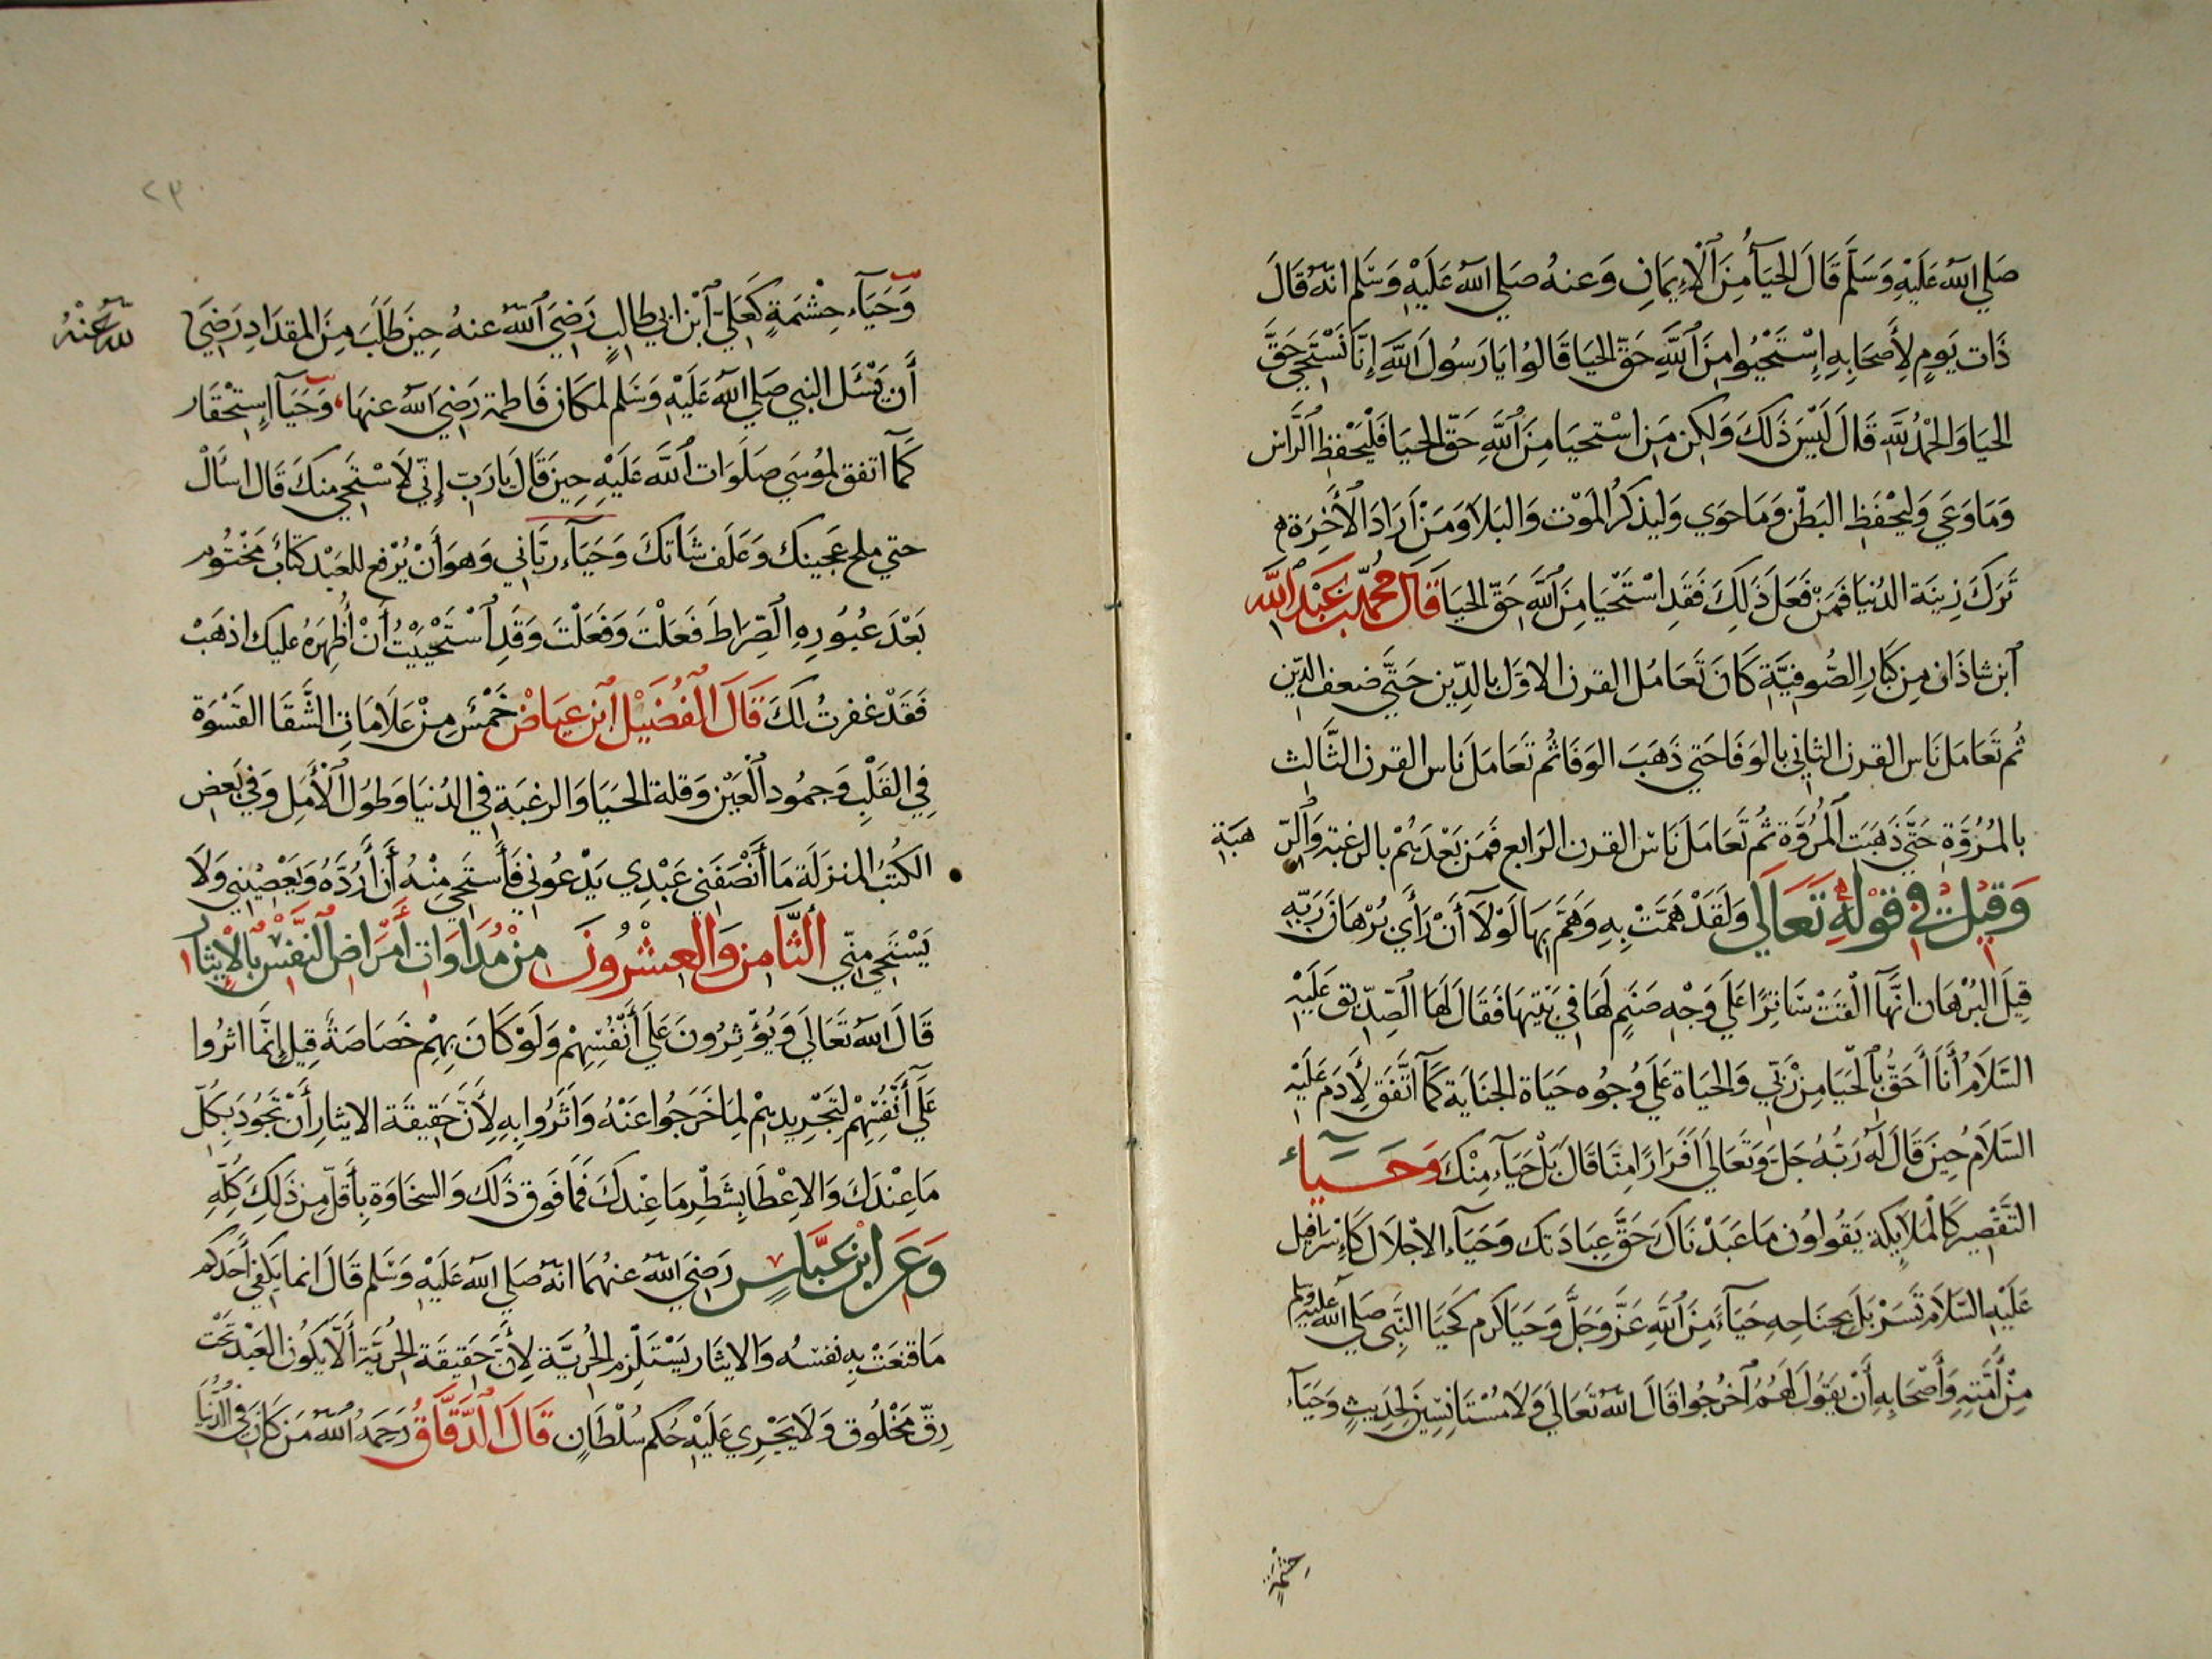 صَلي الله عَلَيْهِ وَسَلَّم قَالَ الحَيَآءُ مِنَ ٱلْإِيمَانِ وَعنهُ صَلي الله عَلَيْهِ وَسَلم انهُ قَالَ
ذَات يَومٍ لِأَصحَابِهِ إِسْتَحْيُوا مِنَ ٱللَّهِ حَقّ الحَيَا قَالُوا يَا رَسُولَ اللَّهِ إِنَّا نَسْتَحِي حَقَّ
الحَيَا وَالحَمْدُ للَّهِ قَالَ لَيْسَ ذَلكَ وَلكِن مَنِ اسْتحيَا مِنَ ٱللَّهِ حَقّ الحَيَا فَلْيَحْفظِ الرَّاسَ
وَمَا وَعَي وَليَحْفَظِ البَطْنَ وَمَا حَوَي وَليَذكُر المَوْتَ وَالبَلَا وَمَنْ أَرَادَ الأَخِرَةَ
تَرَكَ زِينَة الدُنيَا فَمَنْ فَعَلَ ذَلِكَ فَقَدِ اسْتَحْيَا مِنَ ٱللَّهِ حَقّ الحَيَا قَالَ مُحَمَّد بن عَبْدِ اللَّه
ٱبن شاذَان مِن كَبَارِ الصُّوفِيَّةِ كَانَ تَعَامُل القرن الاوَّل بالدِّين حَتَّي ضعف الدِّين
ثُم تَعَامَل نَاس القرن الثاني بالوَفَا حَتي ذَهَبَ الوَفَا ثُم تَعَامَلَ نَاس القرن الثَّالث
بالمُرُوَّةِ حَتَّي ذَهَبَتِ ٱلمُرُوَّة ثُم تَعَامَلَ نَاسُ القرن الرَابع فَمَن بَعْدَهُمْ بالرغبَة وَٱلرّ
هبَة
وَقيلَ في قَوْلِهِ تَعَالَي وَلَقَدْ هَمَّتْ بِهِ وَهَمَّ بهَا لَوْلَآ أَنْ رَأَي بُرْهَانَ رَبِّهِ
قِيلَ البُرْهَان انهَّآ القَتْ سَاتِرًا عَلَي وَجْهِ صَنَمٍ لهَا في بَيْتِهَا فَقَالَ لهَا الصِّدِّيق عَلَيْهِ
السَّلَامُ أَنَا أَحَقُّ بٱلحَيَا مِنْ رَبّي وَالحيَاة عَلَي وُجُوه حَيَاة الجنَايَة كَمَآ اتَّفَقَ لِأَدَم عَلَيْهِ
السَّلَامُ حِينَ قَالَ لَهُ رَبُّهُ جَلَّ وَتَعَالَي أَفَرَارًا مِنَّا قَالَ بَلْ حَيَآء مِنْكَ وَحَيَآء
التَّقصِير كَالمَلَايِكَة يَقُولُون مَا عَبَدْنَاكَ حَقَّ عِبَادَتك وَحَيَآء الاجْلَال كَإِسْرَافيل
عَلَيْهِ السَّلَام تَسَرْبَلَ بجَنَاحِهِ حَيَآءً مِنَ ٱللَّهِ عَزَّ وَجَلَّ وَحَيَا كَرم كَحيَا النَّبِي صَلي اللهُ عَليْهِ وَسَلم
مِنْ أُمَّتِهِ وَأَصْحَابِهِ أَنْ يَقُولَ لَهُمُ ٱخْرُجُوا قَالَ اللهُ تَعَالَي وَلَا مُسْتَانِسِينَ لِحَدِيثٍ وَحَيَآء
حِشْمَةٍ
٢٣
وَحَيَآء حِشْمَةٍ كَعَلِيّ ٱبْنِ ابي طَالِبٍ رَضِيَ ٱللَّهُ عنهُ حِينَ طَلَبَ مِنَ المِقدَادِ رَضِيَ
لله عَنْهُ
أَن يَسْئَل النبي صَلي الله عَلَيْهِ وَسَلم لمكَان فَاطمة رَضِيَ الله عنهَا، وَحَيَآ إِستِحْقَار
كَمَآ اتفق لمُوسَي صَلَوَات ٱللَّه عَلَيْهِ حِينَ قَالَ يَا رَبِّ إِنِّي لَاسْتَحِي منكَ قَال اسأَلْ
حتي ملح عَجِينك وَعَلَف شَاتكَ وَحَيَآء رَبَّاني وَهوَ أَنْ يُرْفع للعَبْدِ كتَابٌ مَخْتُوم
بَعْدَ عبُورِهِ الصّرَاطَ فَعَلْتَ وَفَعَلْتَ وَقَدِ ٱسْتَحْيَيْتُ أَنْ أُظهِرَهُ عليك اذهَبْ
فَقَدْ غفرتُ لَكَ قَالَ ٱلْفُضَيْل ٱبن عيَاض خَمْسٌ مِنْ عَلَامَاتِ الشَّقَا القَسْوَة
فِي القَلْبِ وَجمُود ٱلْعَيْن وَقلة الحَيَا وَالرغبَة في الدُنيَا وَطول ٱلْأَمَلِ وَفي بَعض
الكُتب المنزلَة مَا أَنْصَفَنِي عَبْدِي يَدْعُوني فَأَستَحي مِنْهُ أَن أَرُدَّهُ وَيَعْصِيْنِي وَلَا
يَسْتَحِي مِنّي الثَّامِن وَالعِشْرُونَ مِنْ مُدَاوَات أَمرَاض ٱلنَّفْسْ بالإيثار
قَالَ الله تَعَالَي وَيُؤْثِرُونَ عَلَي أَنْفُسِهِمْ وَلَوْ كَانَ بِهِمْ خَصَاصَةٌ قِيلَ إِنمَّا اثرُوا
عَلَي أَنْفُسِهِمْ لِتَجْرِيدِهِمْ لِمَا خَرَجُوا عَنْهُ وَآثَرُوا بِهِ لِأَنَّ حَقِيقَة الايثارِ أَنْ تَجُودَ بِكُلّ
مَا عِنْدَكَ وَالاعْطَا بِشَطْرِ مَا عِنْدكَ فَمَا فَوق ذَلكَ وَالسخَاوَة بِأَقلّ مِن ذَلِكَ كلِّهِ
وَعَن ابْن عَبَّاسٍ رَضِيَ الله عنهُمَا انهُ صَلي الله عَلَيْهِ وَسَلم قَالَ انما يَكفي أَحَدكم
مَا قنعَتْ بِهِ نفسهُ وَالايثَار يَسْتَلْزم الحُرِيَّة لِأَنَّ حَقِيقَة الحُرِّيَّة أَلَّا يَكُون العَبْد تَحْتَ
رِقّ مَخْلُوق وَلَا يَجْرِي عَلَيْهِ حُكم سُلْطَانٍ قَالَ ٱلدَّقَّاقُ رَحِمَهُ اللهُ مَن كَانَ في الدُّنْيَا